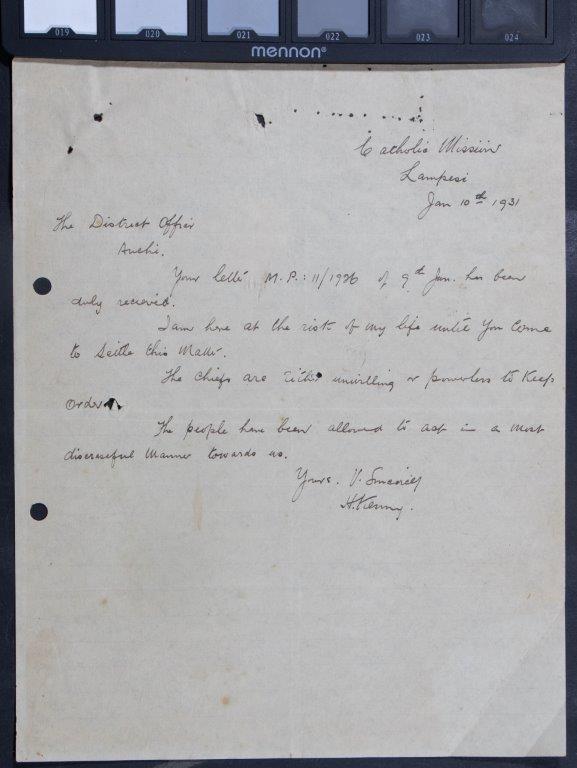 019 020 021 022 023 024
mennon®
Catholic Mission
Lampesi
Jan 10th 1931
The District Officer
Auchi.
Your letter M.P.: 11/1926 of 9th Jan. has been
duly recieved.
I am here at the risk of my life until you come
to settle this matter.
The chiefs are either unwilling or powerless to keep
order.
The people have been allowed to act in a most
disgraceful manner towards us.
Yours. V. Sincerely
H. Kenny.